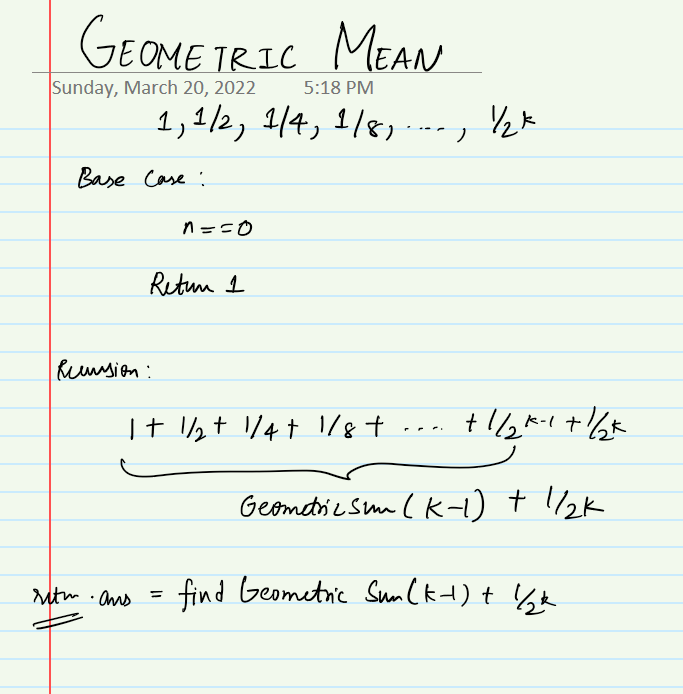 GEOMETRIC MEAN
Sunday, March 20, 2022 5:18 PM
1, 1/2, 1/4, 1/8, ...., 1/2^k
Base Case :
n==0
Return 1
Recursion :
1 + 1/2 + 1/4 + 1/8 + .... + 1/2^k-1 + 1/2^k
Geometric Sum (k-1) + 1/2k
return . ans = find Geometric Sum (k-1) + 1/2^k